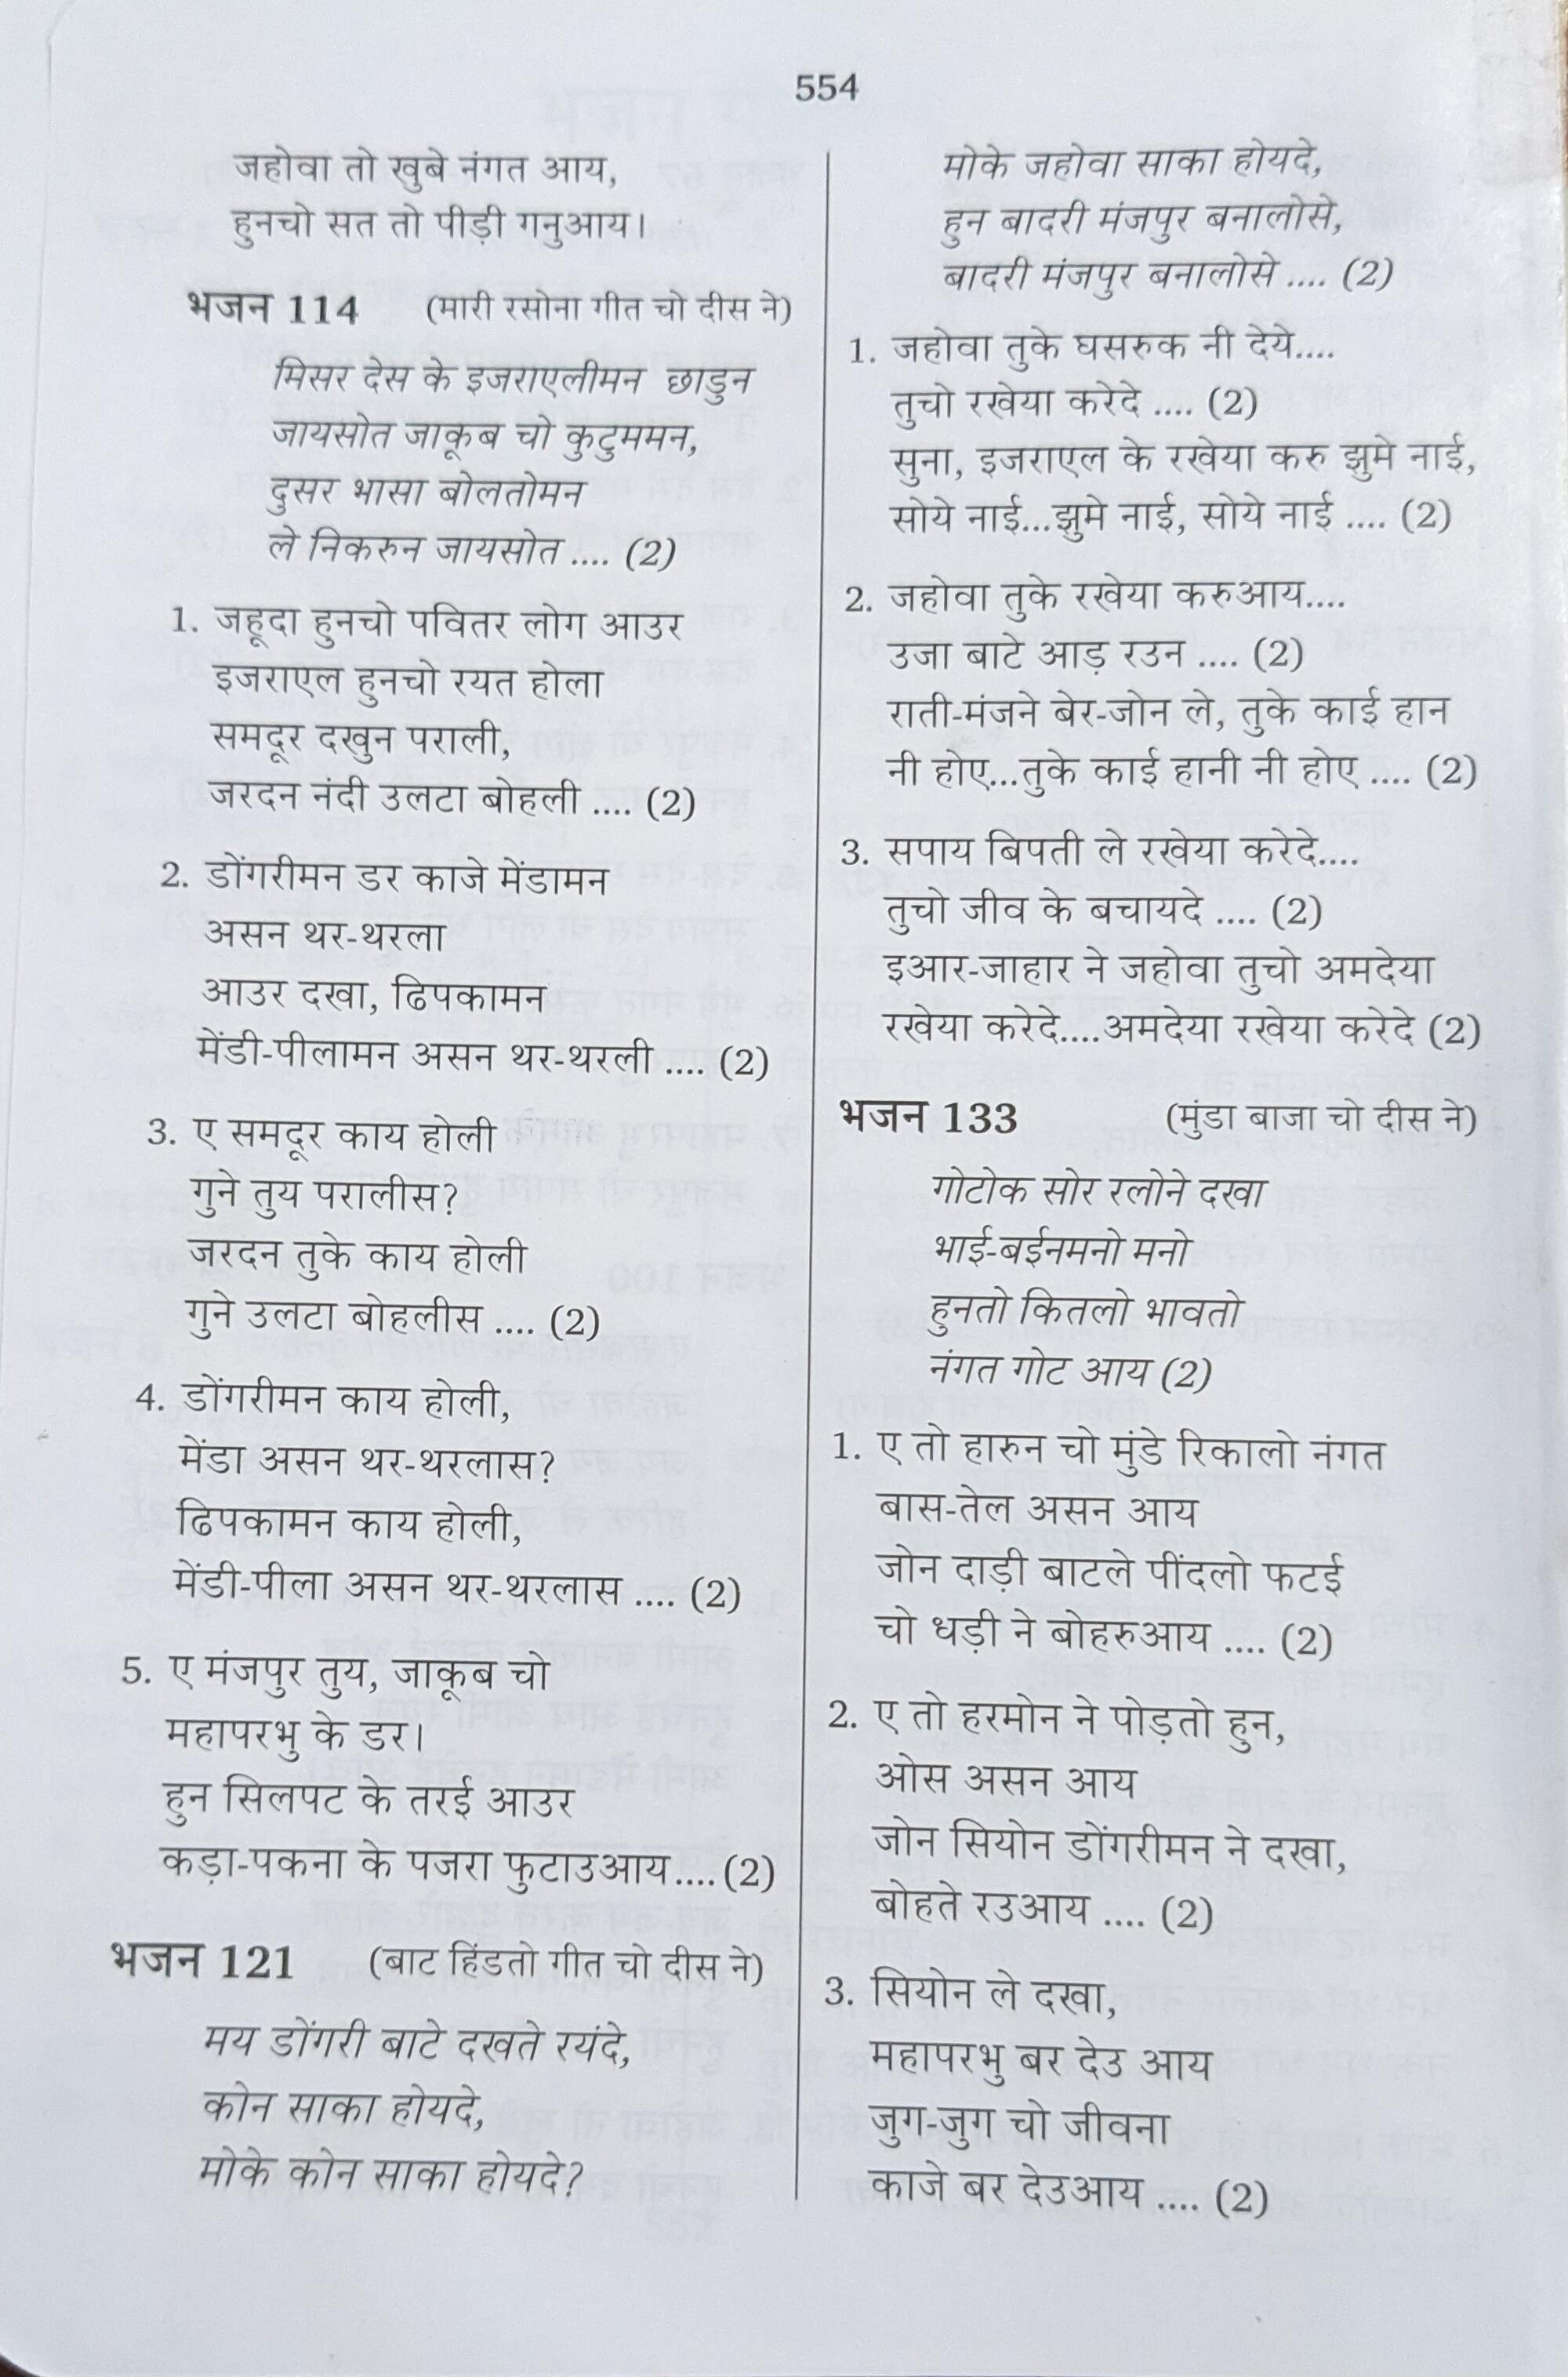 554
जहोवा तो खुबे नंगत आय,
हुनचो सत तो पीड़ी गनुआय।
भजन 114 (मारी रसोना गीत चो दीस ने)
मिसर देस के इजराएलीमन छाडुन
जायसोत जाकूब चो कुटुममन,
दुसर भासा बोलतोमन
ले निकरुन जायसोत .... (2)
1. जहूदा हुनचो पवितर लोग आउर
इजराएल हुनचो रयत होला
समदूर दखुन पराली,
जरदन नंदी उलटा बोहली .... (2)
2. डोंगरीमन डर काजे मेंडामन
असन थर-थरला
आउर दखा, ढिपकामन
मेंडी-पीलामन असन थर-थरली .... (2)
3. ए समदूर काय होली
गुने तुय परालीस?
जरदन तुके काय होली
गुने उलटा बोहलीस .... (2)
4. डोंगरीमन काय होली,
मेंडा असन थर-थरलास?
ढिपकामन काय होली,
मेंडी-पीला असन थर-थरलास .... (2)
5. ए मंजपुर तुय, जाकूब चो
महापरभु के डर।
हुन सिलपट के तरई आउर
कड़ा-पकना के पजरा फुटाउआय.... (2)
भजन 121 (बाट हिंडतो गीत चो दीस ने)
मय डोंगरी बाटे दखते रयंदे,
कोन साका होयदे,
मोके कोन साका होयदे?
मोके जहोवा साका होयदे,
हुन बादरी मंजपुर बनालोसे,
बादरी मंजपुर बनालोसे .... (2)
1. जहोवा तुके घसरुक नी देये....
तुचो रखेया करेदे .... (2)
सुना, इजराएल के रखेया करु झुमे नाई,
सोये नाई...झुमे नाई, सोये नाई .... (2)
2. जहोवा तुके रखेया करुआय....
उजा बाटे आड़ रउन .... (2)
राती-मंजने बेर-जोन ले, तुके काई हान
नी होए...तुके काई हानी नी होए .... (2)
3. सपाय बिपती ले रखेया करेदे....
तुचो जीव के बचायदे .... (2)
इआर-जाहार ने जहोवा तुचो अमदेया
रखेया करेदे....अमदेया रखेया करेदे (2)
भजन 133 (मुंडा बाजा चो दीस ने)
गोटोक सोर रलोने दखा
भाई-बईनमनो मनो
हुनतो कितलो भावतो
नंगत गोट आय (2)
1. ए तो हारुन चो मुंडे रिकालो नंगत
बास-तेल असन आय
जोन दाड़ी बाटले पींदलो फटई
चो धड़ी ने बोहरुआय .... (2)
2. ए तो हरमोन ने पोड़तो हुन,
ओस असन आय
जोन सियोन डोंगरीमन ने दखा,
बोहते रउआय .... (2)
3. सियोन ले दखा,
महापरभु बर देउ आय
जुग-जुग चो जीवना
काजे बर देउआय .... (2)